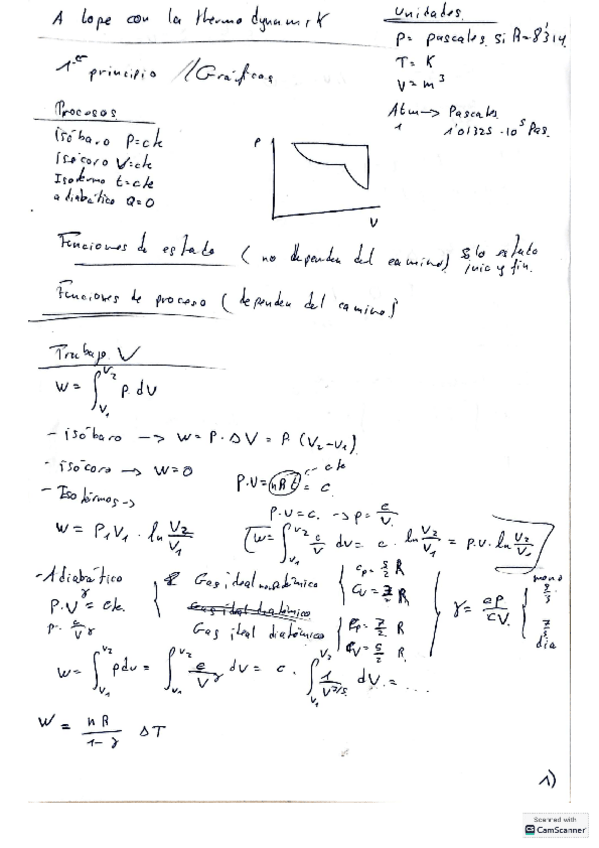 A tope con la thermodynamik
Unidades
P= pascales si R=8'314
T= K
V= m³
Atm → Pascales
1 1'01325 · 10⁵ Pas.
1er principio // Gráficas
Procesos
isóbaro P=cte
isócoro V=cte
Isotermo t=cte
adiabático Q=0
P
V
Funciones de estado ( no dependen del camino) Solo estado
inic y fin.
Funciones de proceso ( dependen del camino)
Trabajo W
W = ∫V₁^V₂ P. dV
- isóbaro → W = P · ΔV = P. (V₂-V₁)
- isócoro → W=0
P.V = nRt = c. ← cte
- Isotermos →
P.V=c. → p= c/V.
W = P₁V₁ · ln V₂/V₁
W= ∫V₁^V₂ c/V dV = c · ln V₂/V₁ = p.v. ln V₂/V₁
- Adiabático
P.V^γ = cte.
P= c/V^γ
Gas ideal monoatómico { Cp= 5/2 R
Cv= 3/2 R
Gas ideal diatómico
Gas ideal diatómico { Cp= 7/2 R
Cv= 5/2 R
γ = cp/cv. { mono 5/3
7/5 dia
W= ∫V₁^V₂ pdv = ∫V₁^V₂ c/V^γ dV = c · ∫V₁^V₂ 1/V^7/5 dV. = ...
W = nR/1-γ ΔT
1)
Scanned with
CS CamScanner